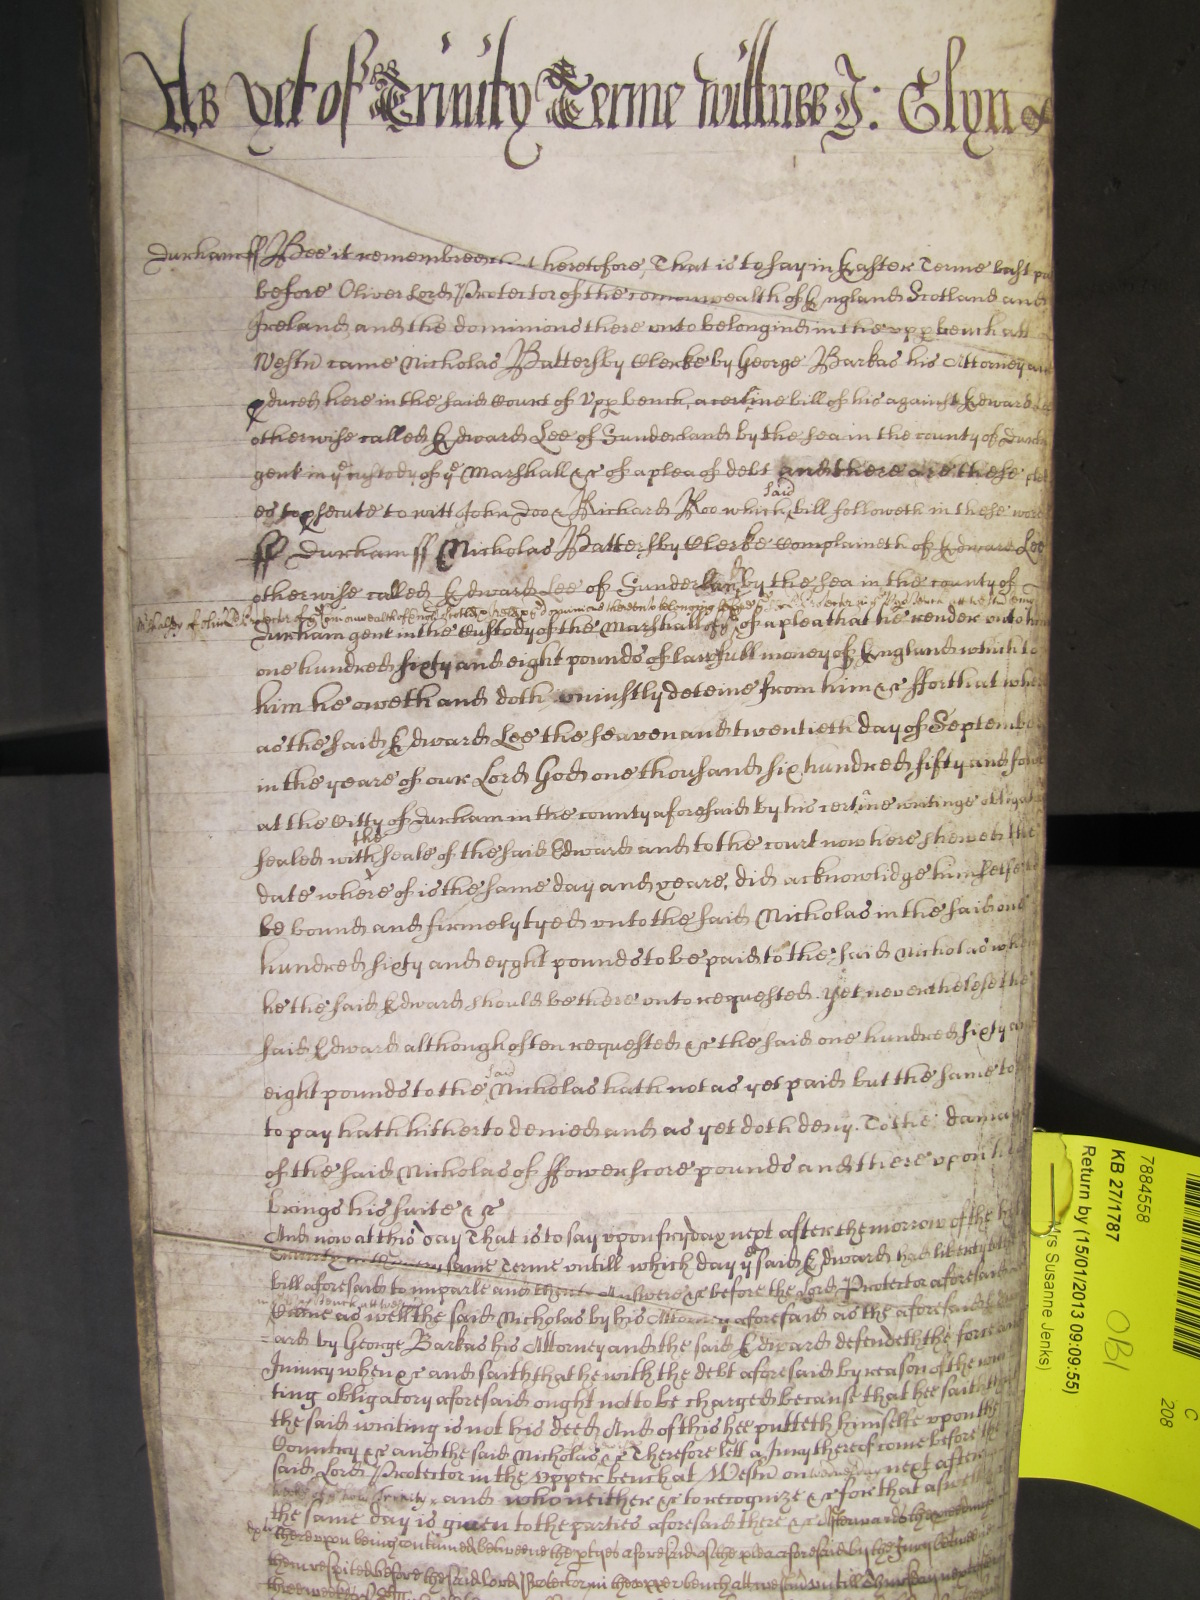 As yet of Trinity Terme wittnes J: Glyn &
Durham ss Bee it remembred heretofore, That is to say in Easter Terme last
before Oliver Lord Protector of the comonwealth of England Scotland and
Ireland and the dominions there unto belonging in the upp bench att
Westm came Nicholas Battersby Clerke by George Barkas his Attorney
duced here in the said Court of Upp bench, a certine bill of his against Edward Lee
otherwise called Edward Lee of Sunderland by the sea in the county of
gent in ye custody of ye Marshall &c of a plea of debt and there are these
to psecute to witt John Doo & Richard Roo which said bill followeth in these
ss Durham ss Nicholas Battersby Clerke Complaineth of Edward Lee
otherwise called Edward Lee of Sunderland by the sea in the county of
Durham gent in the Custody of the Marshall of a plea that he render unto him
one hundred sixty and eight pounds of lawfull money of England which to
him he oweth and doth uniustly deteine from him &c ffor that
as the said Edward Lee the seaven and twentieth day of
in the yeare of our Lord God one thousand six hundred fifty and
at the Citty of Durham in the county aforesaid by his certine writinge
sealed with the seale of the said Edward and to the court now here shewed the
date where of is the same day and yeare, did acknowlidge himselfe
be bound and firmely tyed unto the said Nicholas in the said one
hundred sixty and eyght pounds to be paid to the said Nicholas
he the said Edward should be there unto requested. Yet neverthelesse the
said Edward although often requested &c the said one hundred sixty
eight pounds to the said Nicholas hath not as yet paid but the same to
to pay hath hitherto denied and as yet doth deny. To the
of the said Nicholas of ffower score pounds and there upon
brings his suite &c
And now at this day That is to say upon fryday next after the morrow of the
same Terme untill which day ye said Edward had liberty
bill aforesaid to imparle and Answere &c before the Lord Protector aforesaid
as well the said Nicholas by his Attorney aforesaid as the aforesaid
ard by George Barkas his Attorney and the said Edward defendeth the force
Iniury when &c and saith that he with the debt aforesaid by reason of the
ting obligatory aforesaid ought not to be charged because that hee saith
the said writing is not his deed And of this hee putteth himselfe upon the
Country &c and the said Nicholas &c Therefore lett a Jury thereof come before the
said Lord Protector in the upper bench at Westm on next after
and who neither &c to recognize &c for that
the same day is given to the parties aforesaid there &c Afterwards
there upon being continued betweene the ptyes aforesaid of the plea aforesaid by the Jury
them respited before the said Lord Protector in the upper bench att westm untill
three weekes
7884558
KB 27/1787
Return by (15/01/2013 09:09:55)
Mrs Susanne Jenks)
OBI
C
208